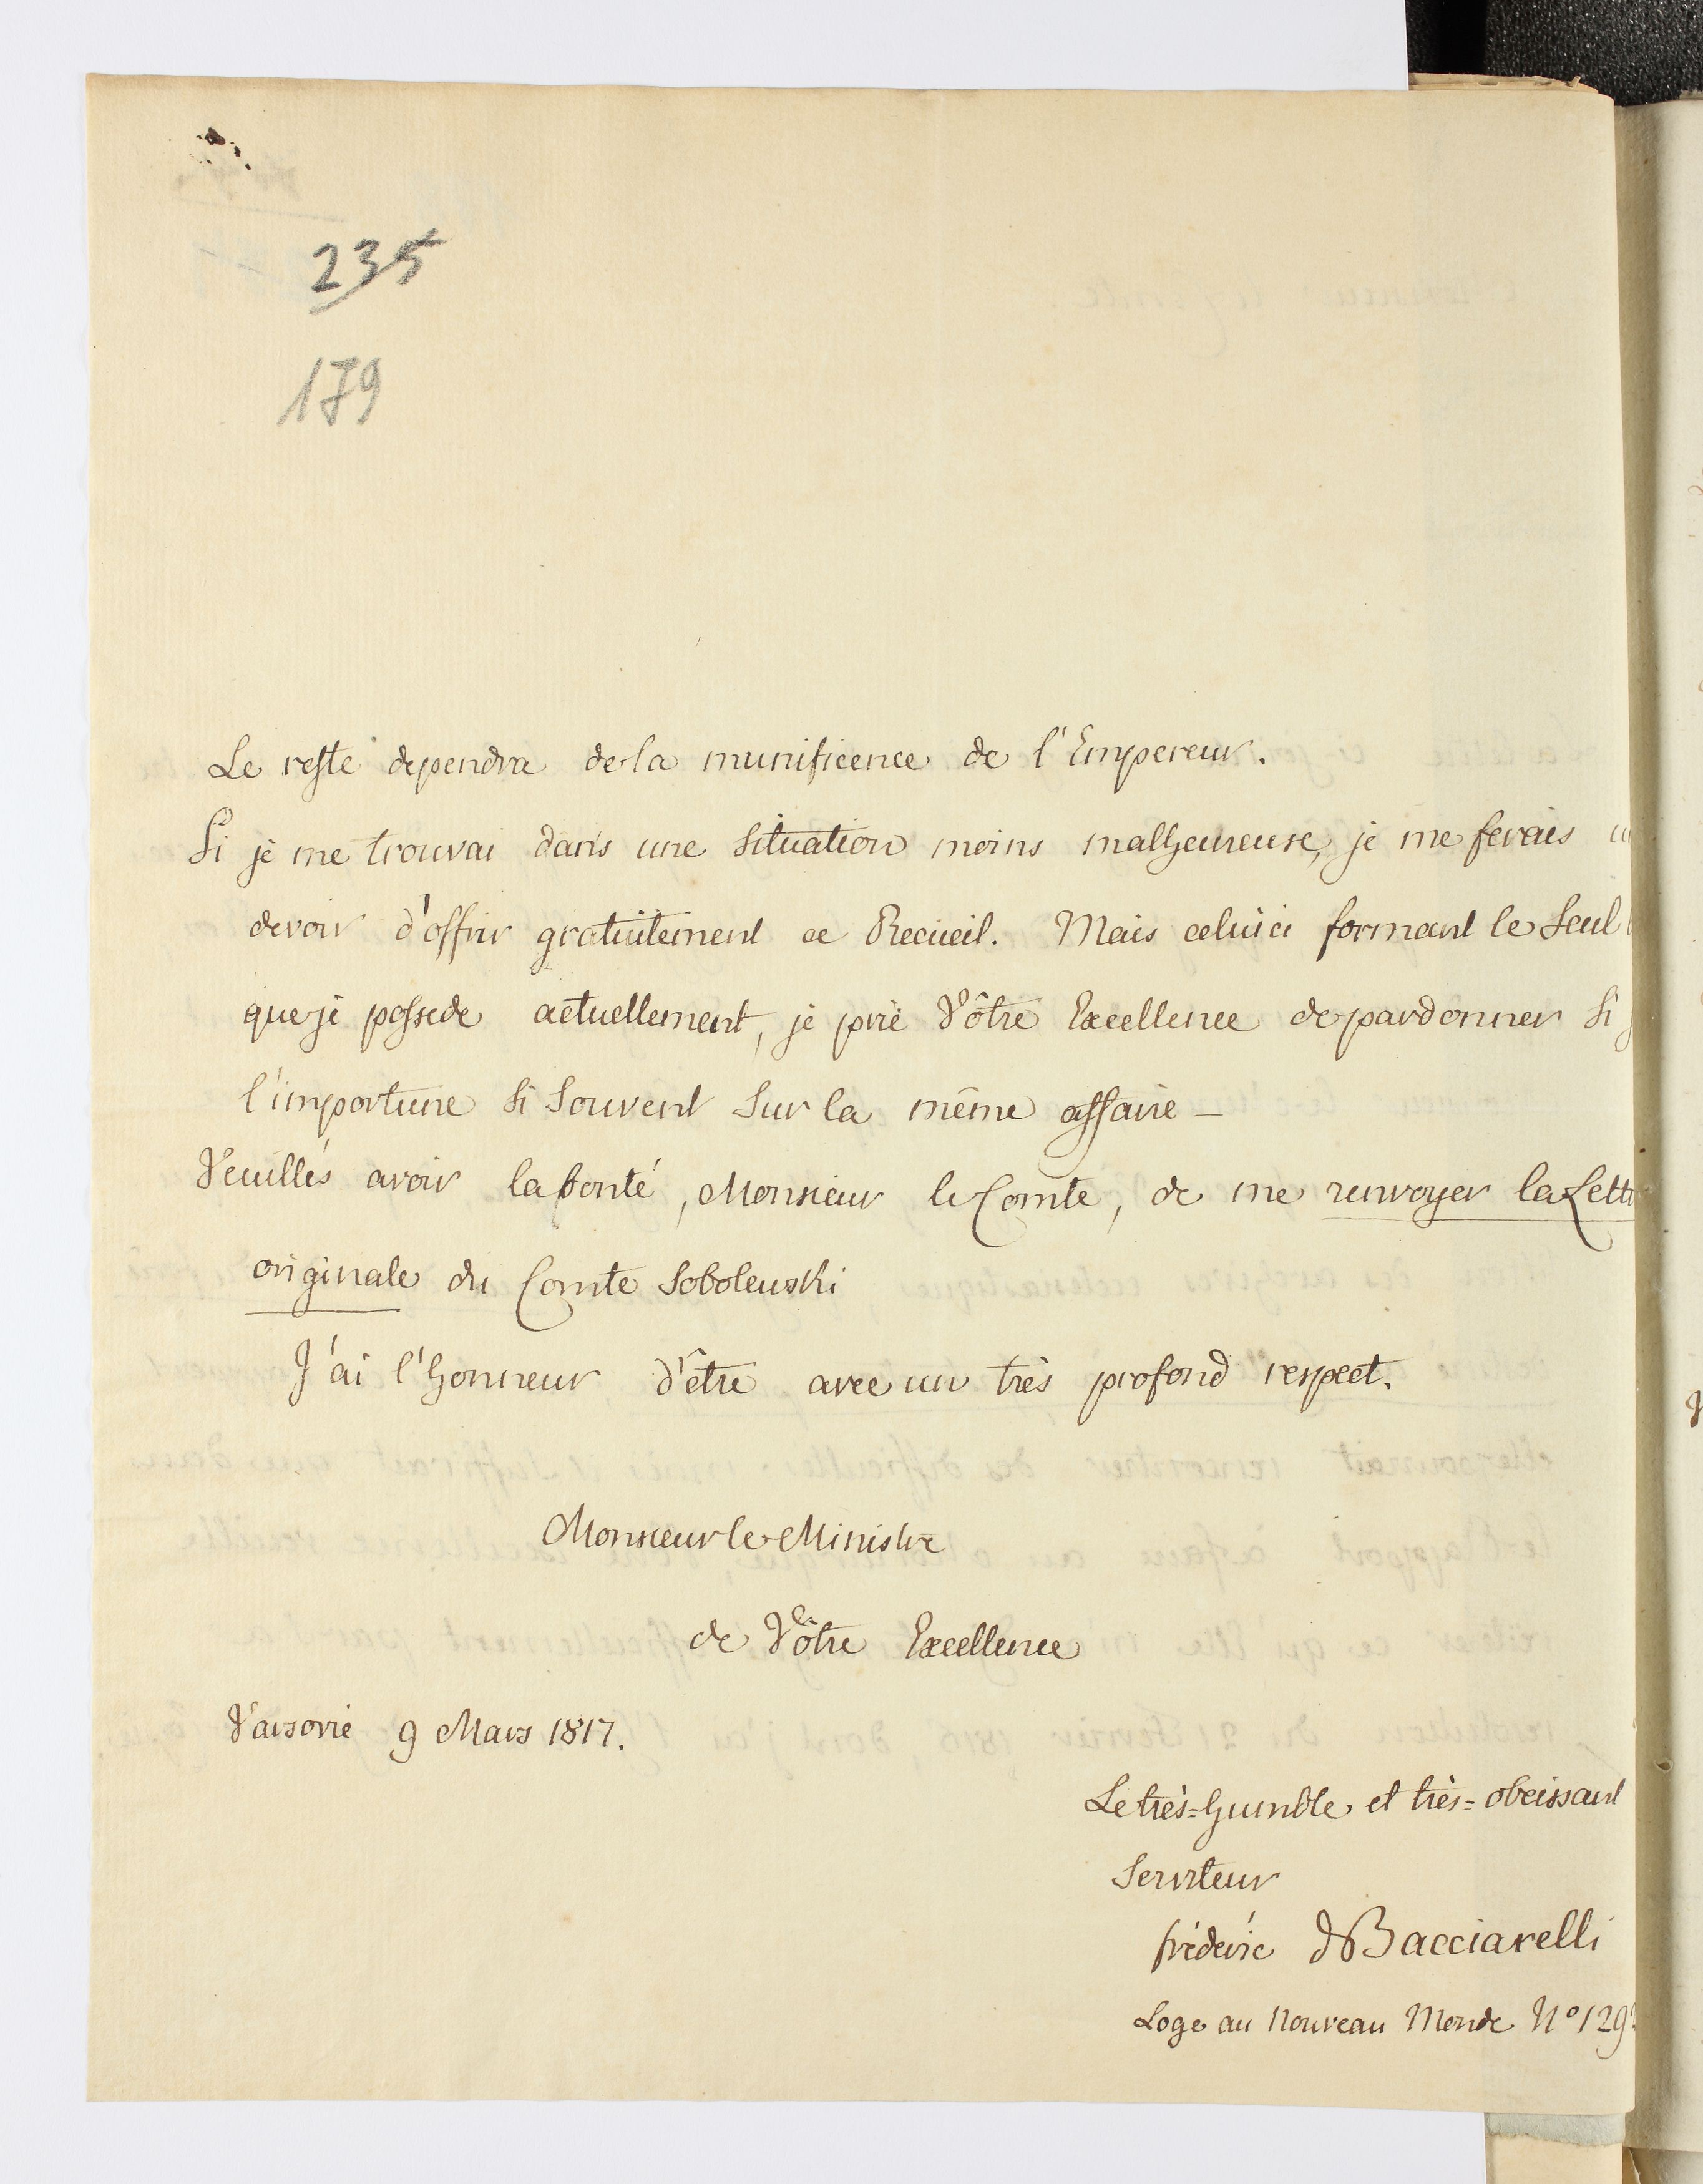 235
179
Le reste dependra de la munificence de l'Empereur.
Si je me trouvai dans une Situation moins malheureuse, je me ferais
devoir d'offrir gratuitement ce Recueil. Mais celuici formant le Seul
que je possede actuellement, je prie Vôtre Excellence de pardonner Si
l'importune Si Souvent Sur la même affaire —
Veuillés avoir la bonté, Monsieur le Comte, de me renvoyer la Lett
originale du Comte Sobolewski
J'ai l'honneur d'être avec un très profond respect.
Monsieur le Ministre
de Vôtre Excellence
Varsovie 9 Mars 1817.
Le très=humble et très=obeissant
Serviteur
fréderic de Bacciarelli
Loge au Nouveau Monde N° 129